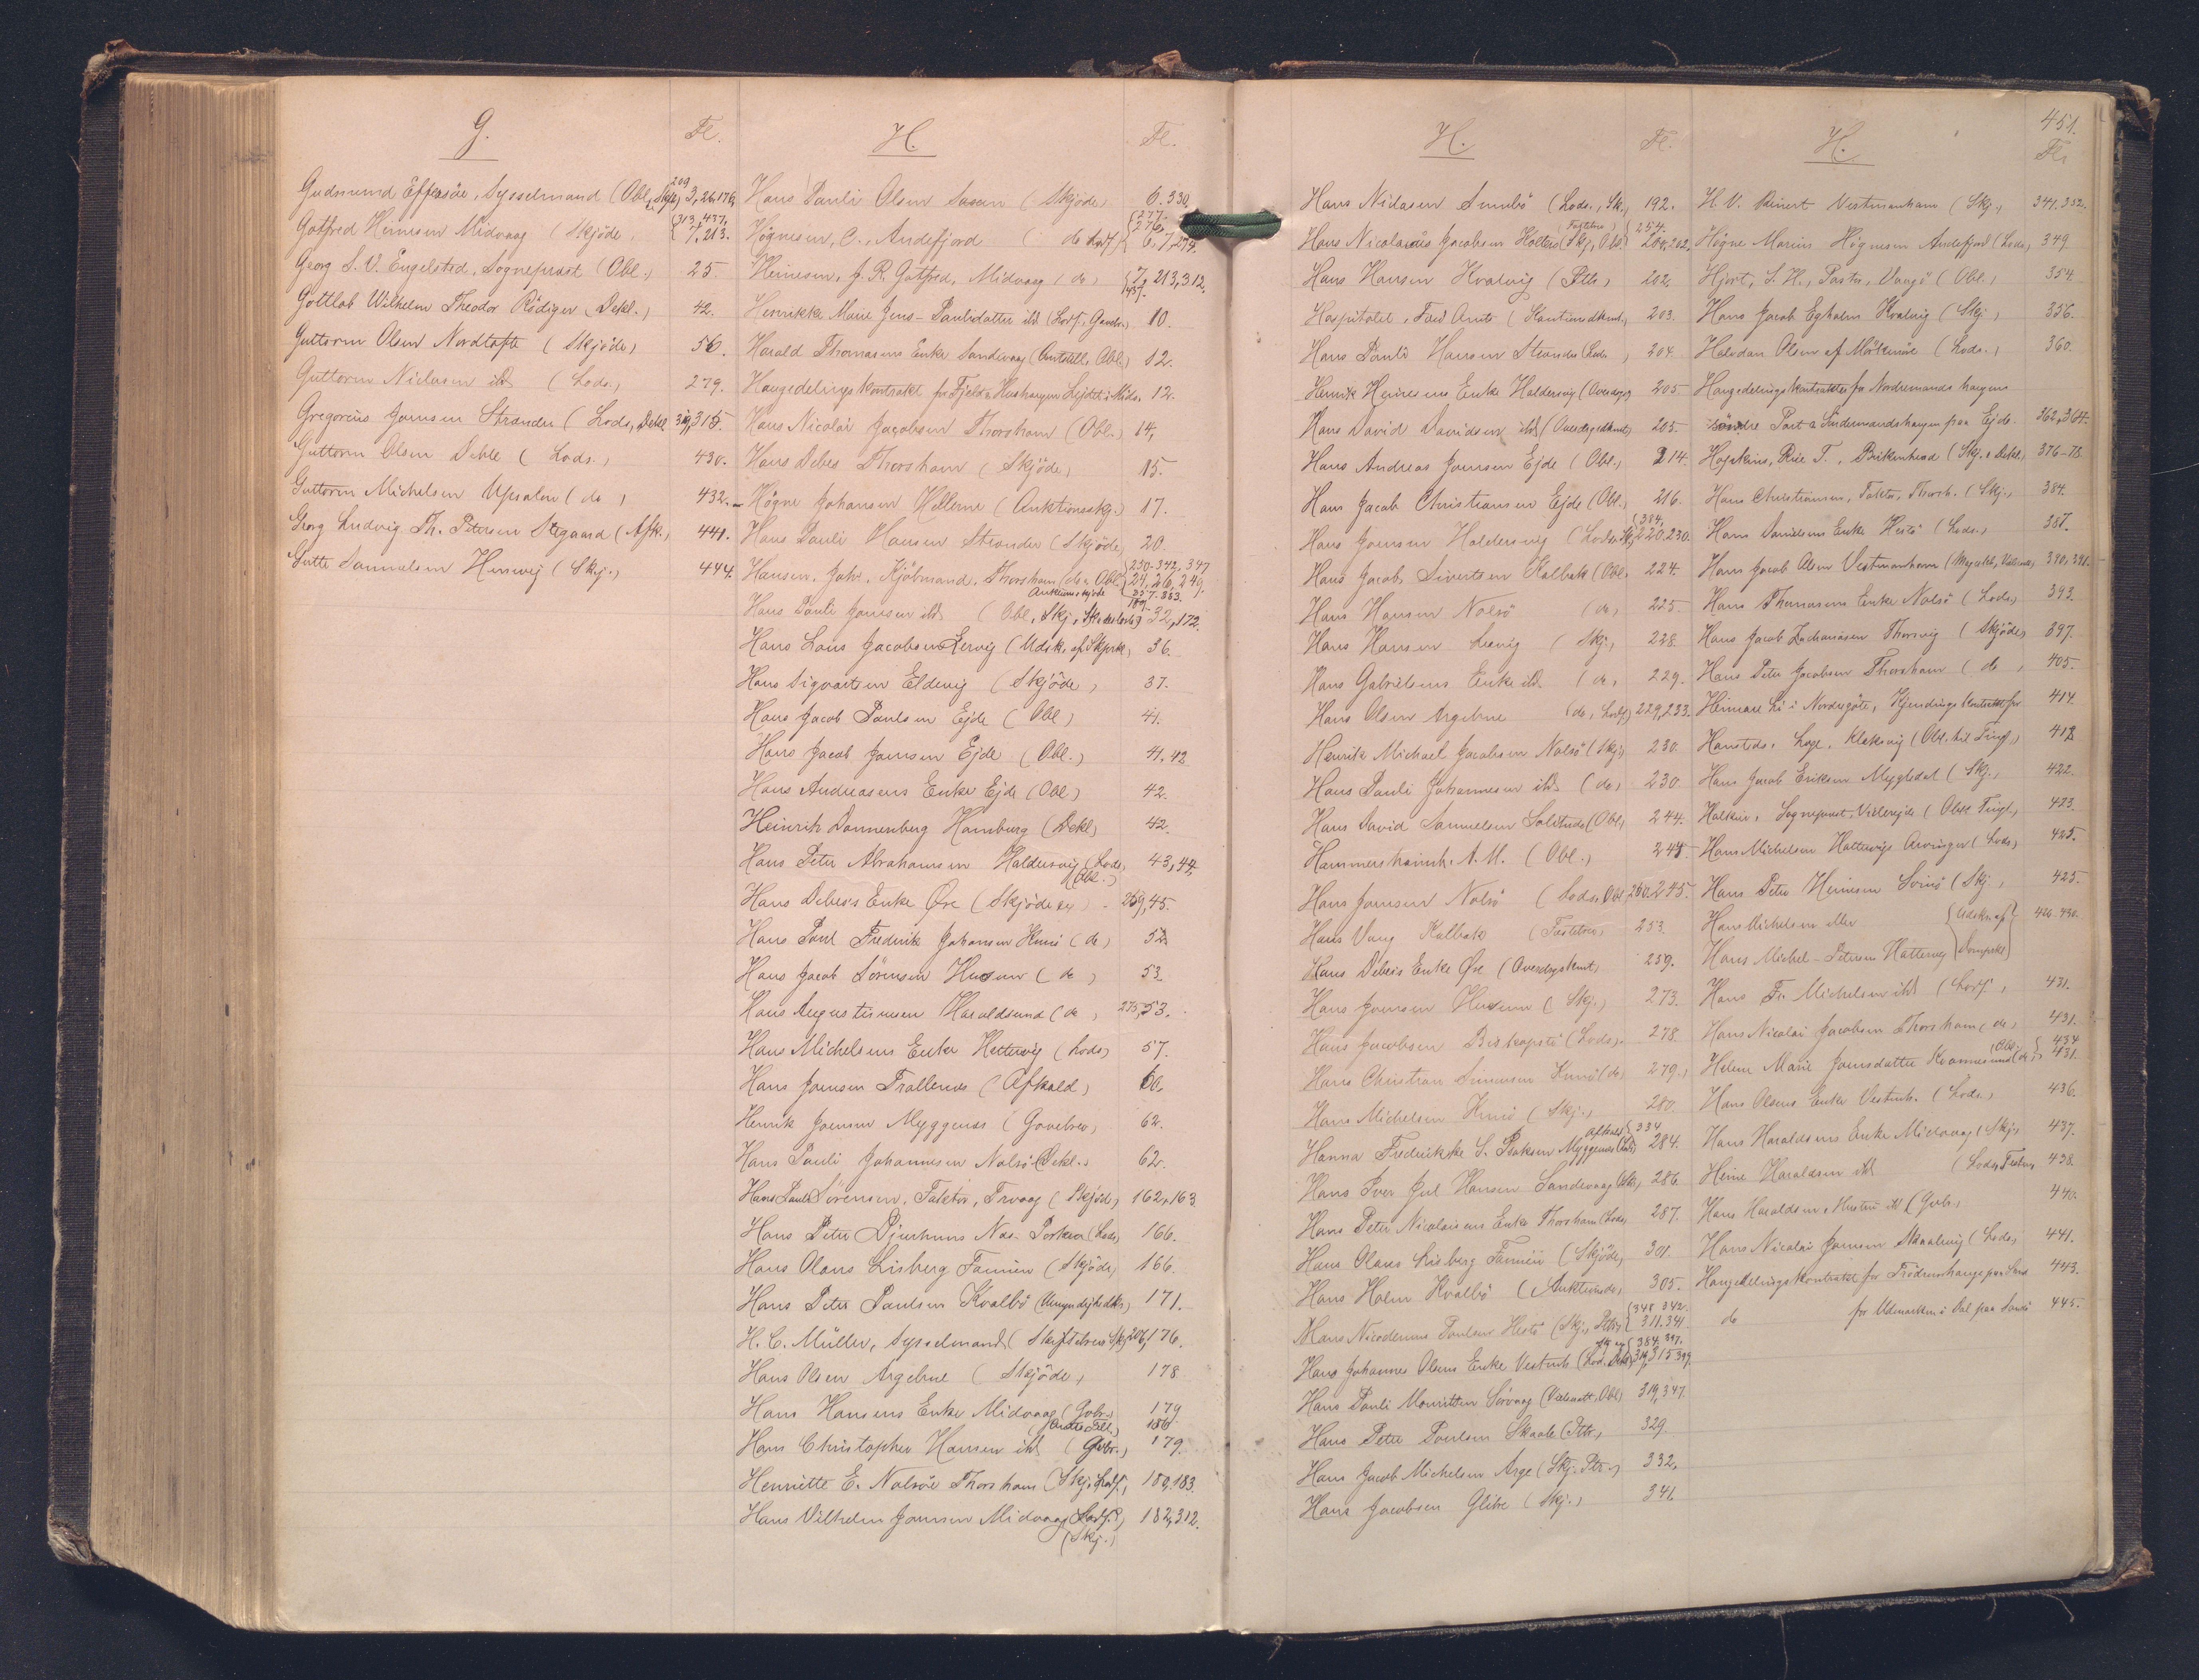 G.
Fl.
Gudmund Effersøe, Sysselmand (Obl. Skje) 209 3, 26, 176,
Gotfred Heinesen Midvaag (Skjöde, {313, 437, 7, 213.
Georg S. V. Engelsted, Sogneprast (Obl.) 25.
Gottlob Wilhelm Theodor Rödiger (Dekl.) 42.
Guttorm Olsen Nordtofte (Skjöde) 56.
Guttorm Niclasen ibd (Lods.) 279.
Gregorius Joensen Strander (Lods, Dekl. 319, 315.
Guttorm Olsen Dehle (Lods.) 430.
Guttorm Michelsen Upsalen (do) 432.
Georg Ludvig Th. Petersen Stegaard (Afk.) 441.
Gutte Samuelsen Husevig (Skj.) 444.
H.
Fl.
Hans Pauli Olsen Saxen (Skjöde) 6. 330,
Högnesen, C., Andefjord (do Lodf) {277. 276, 6, 7, 274.
Heinesen, J. R. Gotfred, Midvaag (do) {7, 213, 312, 437.
Henrikke Marie Jens-Paulidatter ibd (Lodf. Gaveb.) 10.
Harald Thomasens Enke Sandevaag (Amtstill. Obl.) 12.
Haugedelingskontrakt for Fjeld & Heshaugen Lejdet i Mids. 12.
Hans Nicolai Jacobsen Thorshavn (Obl.) 14,
Hans Debes Thorshavn (Skjöde) 15.
Högne Johansen Hellerne (Auktionsskj.) 17.
Hans Pauli Hansen Strander (Skjöde) 20.
Hansen, Joh., Kjöbmand, Thorshavn (do & Obl.) {230-342, 347 24, 26, 249.
Auktionsskjöde 357. 363.
Hans Pauli Joensen ibd (Obl, Skj, 32, 172.
Hans Hans Jacobsen Lervig (Udsk. af Skjprk) 36.
Hans Sigvartsen Eldevig (Skjöde) 37.
Hans Jacob Poulsen Ejde (Obl) 41.
Hans Jacob Joensen Ejde (Obl.) 41, 42
Hans Andreasens Enke Ejde (Obl) 42.
Heinrich Dannenberg Hamburg (Dekl) 42.
Hans Peter Abrahamsen Haldersvig (Lods, Obl.) 43, 44,
Hans Debes's Enke Øre (Skjöde 259, 45.
Hans Poul Fredrik Johansen Kunö (do) 52
Hans Jacob Sörensen Husum (do) 53.
Hans Augustinussen Haraldsund (do) 275, 53.
Hans Michelsens Enke Hattervig (Lods) 57.
Hans Joensen Trallenæs (Afkald) 60,
Henrik Joensen Myggenæs (Gavebrev) 62.
Hans Pauli Johannesen Nolsö (Dekl.) 62.
Hans Pauli Sörensen, Faktor, Trvaag (Skjöd) 162, 163
Hans Peter Djurhuus Næs Porkeri (Lods) 166.
Hans Olaus Lisberg Famien (Skjöde) 166.
Hans Peter Poulsen Kvalbö (Umyndighedskr) 171.
H. C. Müller, Sysselmand (Skiftebrev Skj 206, 176.
Hans Olsen Argebne (Skjöde) 178
Hans Hansens Enke Midvaag (Gvbr.) 179
(Amts Till.) 186
Hans Christopher Hansen ibd (Gvbr.) 179.
Henriette E. Nolsöe Thorshavn (Skj. Lodf.) 180, 183.
Hans Vilhelm Joensen Midvaag (Lodf.) 182, 312.
(Skj.)
H.
Fl.
Hans Niclasen Sumbö (Lods., Sk.) 192.
Hans Nicolai Jacobsen Kolter (Skj, Obl.) {254. 200, 202,
Hans Hansen Kvalvig (Ptbr) 202.
Hospitalet, Færö Amts (Kautionsdkmt.) 203.
Hans Pauli Hansen Strander (Lods) 204.
Henrik Heinesens Enke Haldersvig (Overdrgs) 205
Hans David Davidsen ibd (Overdrgsdkmt) 205.
Hans Andreas Joensen Ejde (Obl.) 214.
Hans Jacob Christiansen Ejde (Obl.) 216.
Hans Joensen Haldersvig (Lods, Sk) {384, 220, 230.
Hans Jacob Sivertsen Kalbak (Obl. 224.
Hans Hansen Nolsö (do) 225.
Hans Hansen Lervig (Skj.) 228.
Hans Gabrielsens Enke ibd. (do) 229.
Hans Olsen Argebne (do, Lodf) 229, 233.
Henrik Michael Jacobsen Nolsö (Skj) 230.
Hans Pauli Johannesen ibd (do) 230
Hans David Samuelsen Solitude (Obl) 244.
Hammershaimb. A. M. (Obl.) 245.
Hans Joensen Nolsö (Lods. Obl) 260. 245.
Hans Vang Kalbak (Fæstebr) 253.
Hans Debes's Enke Øre (Overdrgskmt) 259.
Hans Joensen Husum (Skj.) 273.
Hans Jacobsen Biskopstö (Lods). 278.
Hans Christian Simonsen Kunö (do) 279.
Hans Michelsen Kunö (Skj.) 280.
Hanna Fredrikke S. Isaksen Myggenæs Afkald {334 284.
Hans Iver Jul Hansen Sandevaag (Skj) 286.
Hans Peter Nicolaisens Enke Thorshavn (Lods) 287.
Hans Olaus Lisberg Famien (Skjöde) 301.
Hans Holm Kvalbö (Auktionsk) 305.
Hans Nicodemus Poulsen Hestö (Skj., Ptbr) {348 342. 311. 341
Hans Johannes Olsens Enke Vestmh. (Lod. Dekl) {384, 397. 319, 315. 399.
Hans Pauli Mouritsen Sörvaag (Obl) 319, 347.
Hans Peter Poulsen Skaale (Ptbr) 329.
Hans Jacob Michelsen Arge (Skj. Ptr.) 332.
Hans Jacobsen Glibre (Skj.) 341.
451.
H.
Fl.
H. V. Reinert Vestmanhavn (Skj.) 341. 352.
Högne Marius Högnesen Andefjord (Lods) 349
Hjort, S. H., Pastor, Vaagö (Obl.) 354
Hans Jacob Egholm Kvalvig (Skj) 356.
Halvdan Olsen af Mökenöre (Lods.) 360.
Haugedelingskontrakter for Nordremands haugens
söndre Part & Sudermandshaugen paa Ejde 362, 364.
Hopkins, Rice T., Birkenhead (Skj. & Dekl.) 376-78
Hans Christiansen, Faktor, Thorsh. (Skj.) 384.
Hans Danielsens Enke Hestö (Lods.) 387.
Hans Jacob Olsen Vestmanhavn 390, 391.
Hans Thomasens Enke Nolsö (Lods) 393.
Hans Jacob Zachariasen Thorsvig (Skjöde) 397.
Hans Peter Jacobsen Thorshavn (do) 405.
i Nordregöte, Kjendingskontrakt for 414.
Hansteds, Loge, Klaksvig (Obl. til Tingl.) 418
Hans Jacob Eriksen Mygledal (Skj.) 422.
Sogneprast, Viderejde (Obl. Tingl.) 423.
Hans Michelsen Hattervigs Arvinger (Lods) 425.
Hans Peter Heinesen Svinö (Skj.) 425.
Hans Michelsen eller {Udskr. af} 426-430.
Hans Michel-Petersen Hattervig
Hans Fr. Michelsen ibd (Lodf.) 431.
Hans Nicolai Jacobsen Thorshavn (do) 431.
Helene Marie Joensdatter Kvannesund (do) (Obl.) {434 431.
Hans Olsens Enke Vestmh. (Lods.) 436.
Hans Haraldsens Enke Midvaag (Skj) 437.
Heine Haraldsen ibd (Lods, 438.
Hans Haraldsen & Hustru ibd (Gvbr) 440.
Hans Nicolai Joensen Skaalevig (Lods) 441.
Haugedelingskontrakt for Trödumshauge paa Sand 443.
do for Udmarken i Dal paa Sandö 445.